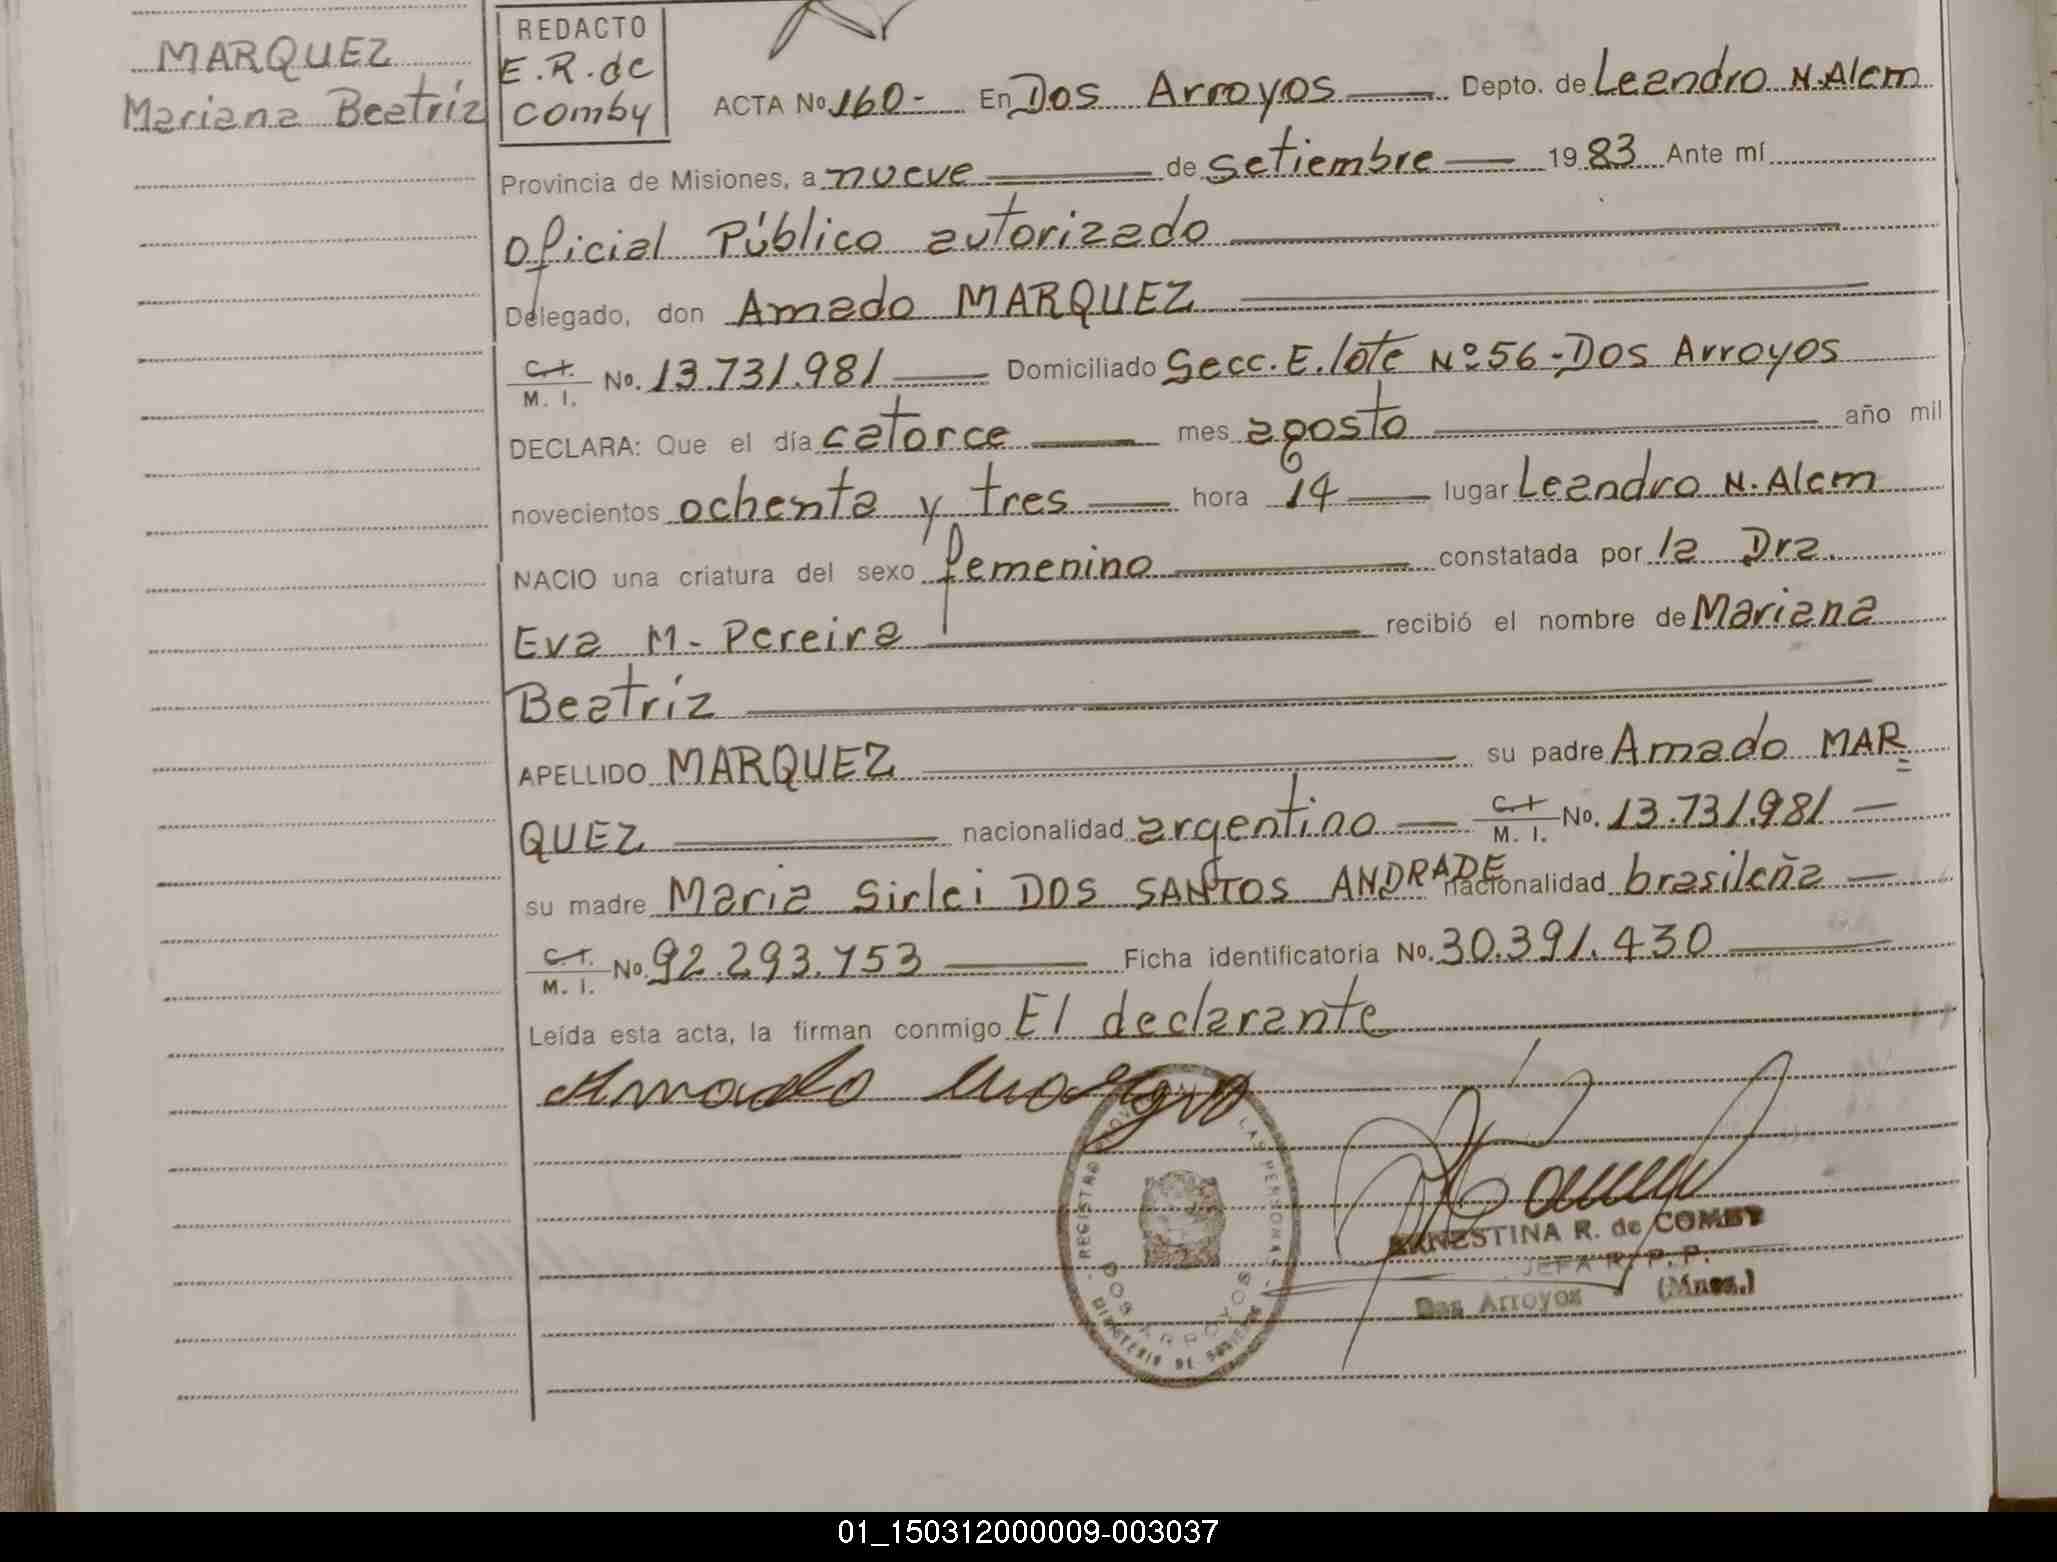 MARQUEZ
Mariana Beatríz
REDACTO
E.R.de
Comby
ACTA No. 160- En Dos Arroyos Depto. de Leandro N. Alem
Provincia de Misiones, a nueve de setiembre 1983 Ante mí
Oficial Público autorizado
Delegado, don Amado MARQUEZ
C.I.
M. I. No. 13.731.981 Domiciliado Secc. E. lote Nº 56-Dos Arroyos
DECLARA: Que el día catorce mes agosto año mil
novecientos ochenta y tres hora 14 lugar Leandro N. Alem
NACIO una criatura del sexo femenino constatada por la Dra.
Eva M. Pereira recibió el nombre de Mariana
Beatríz
APELLIDO MARQUEZ su padre Amado MAR
QUEZ nacionalidad argentino C.I. M. I. No. 13.731.981
su madre Maria Sirlei DOS SANTOS ANDRADE nacionalidad brasileña
C.I.
M. I. No. 92.293.753 Ficha identificatoria No. 30.391.430
Leída esta acta, la firman conmigo El declarante
Amado
REGISTRO LAS PERSONAS
DOS ARROYOS
MINISTERIO DE GOBIERNO
ERNESTINA R. de COMBY
JEFA R. P. P.
Dos Arroyos (Mnes.)
01_150312000009-003037